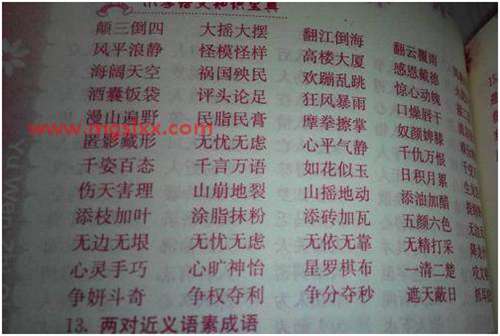 小学语文知识宝典
颠三倒四 大摇大摆 翻江倒海 翻云覆雨
风平浪静 怪模怪样 高楼大厦 感恩戴德
海阔天空 祸国殃民 欢蹦乱跳 惊心动魄
酒囊饭袋 评头论足 狂风暴雨 口燥唇干
漫山遍野 民脂民膏 摩拳擦掌 奴颜婢膝
www.mgsfxx.com
匿影藏形 无忧无虑 心平气静 千仇万恨
千姿百态 千言万语 如花似玉 日积月累
伤天害理 山崩地裂 山摇地动 添油加醋
添枝加叶 涂脂抹粉 添砖加瓦 五颜六色
无边无垠 无忧无虑 无依无靠 无精打采
心灵手巧 心旷神怡 星罗棋布 一清二楚
争妍斗奇 争权夺利 争分夺秒 遮天蔽日
13. 两对近义语素成语